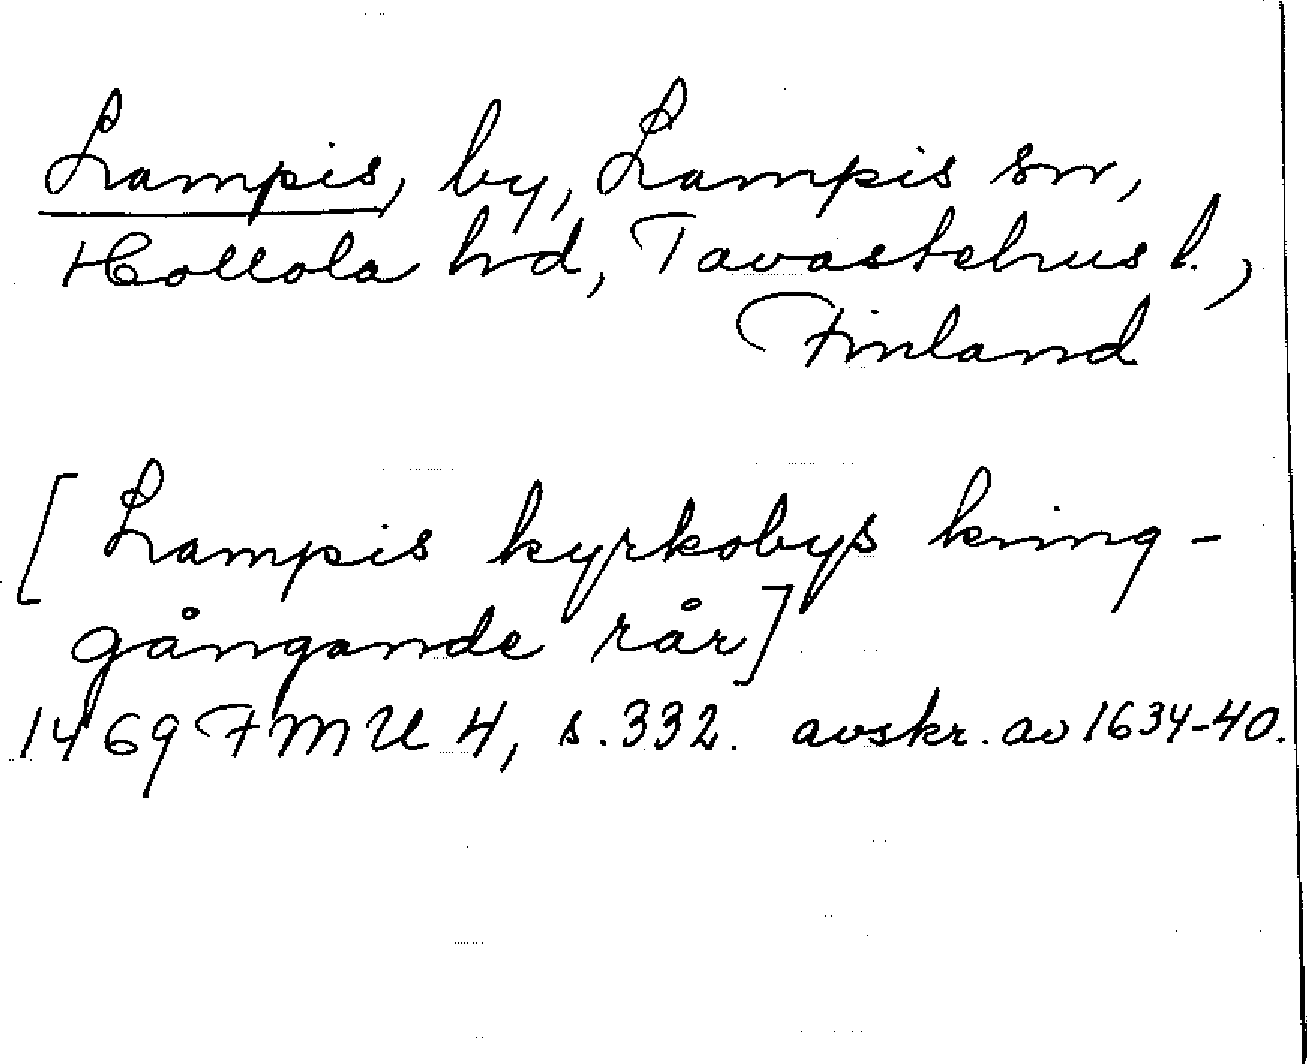 Lampis, by, Lampis sn,
Hollola hd, Tavastehus l.,
Finland
[Lampis kyrkobys kring-
gångande rår]
1469 FMU 4, s. 332. avskr. av 1634-40.